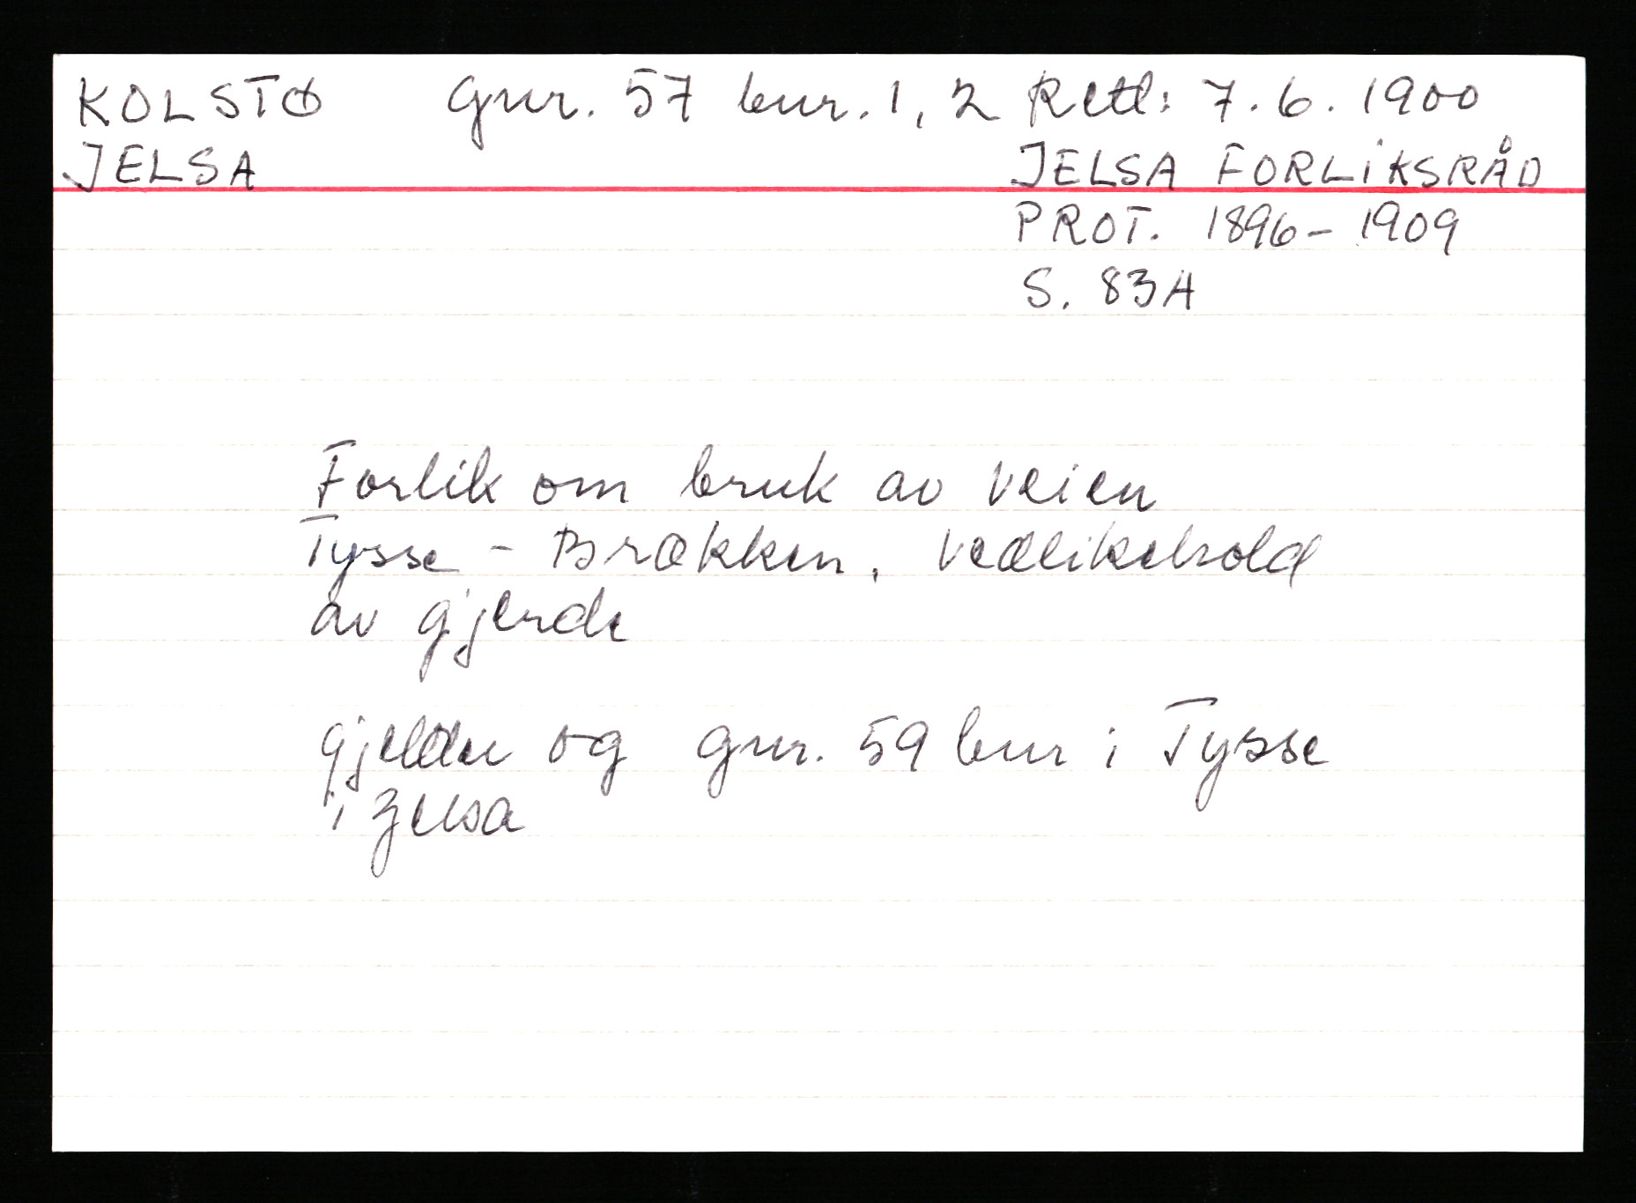 KOLSTØ Gnr. 57 bnr. 1, 2 Retl: 7.6.1900
JELSA JELSA FORLIKSRÅD
PROT. 1896-1909
S. 83A
Forlik om bruk av veien
Tysse - Brekken, vedlikehold
av gjerde
gjelder og gnr. 59 bnr 1 Tysse
i Jelsa